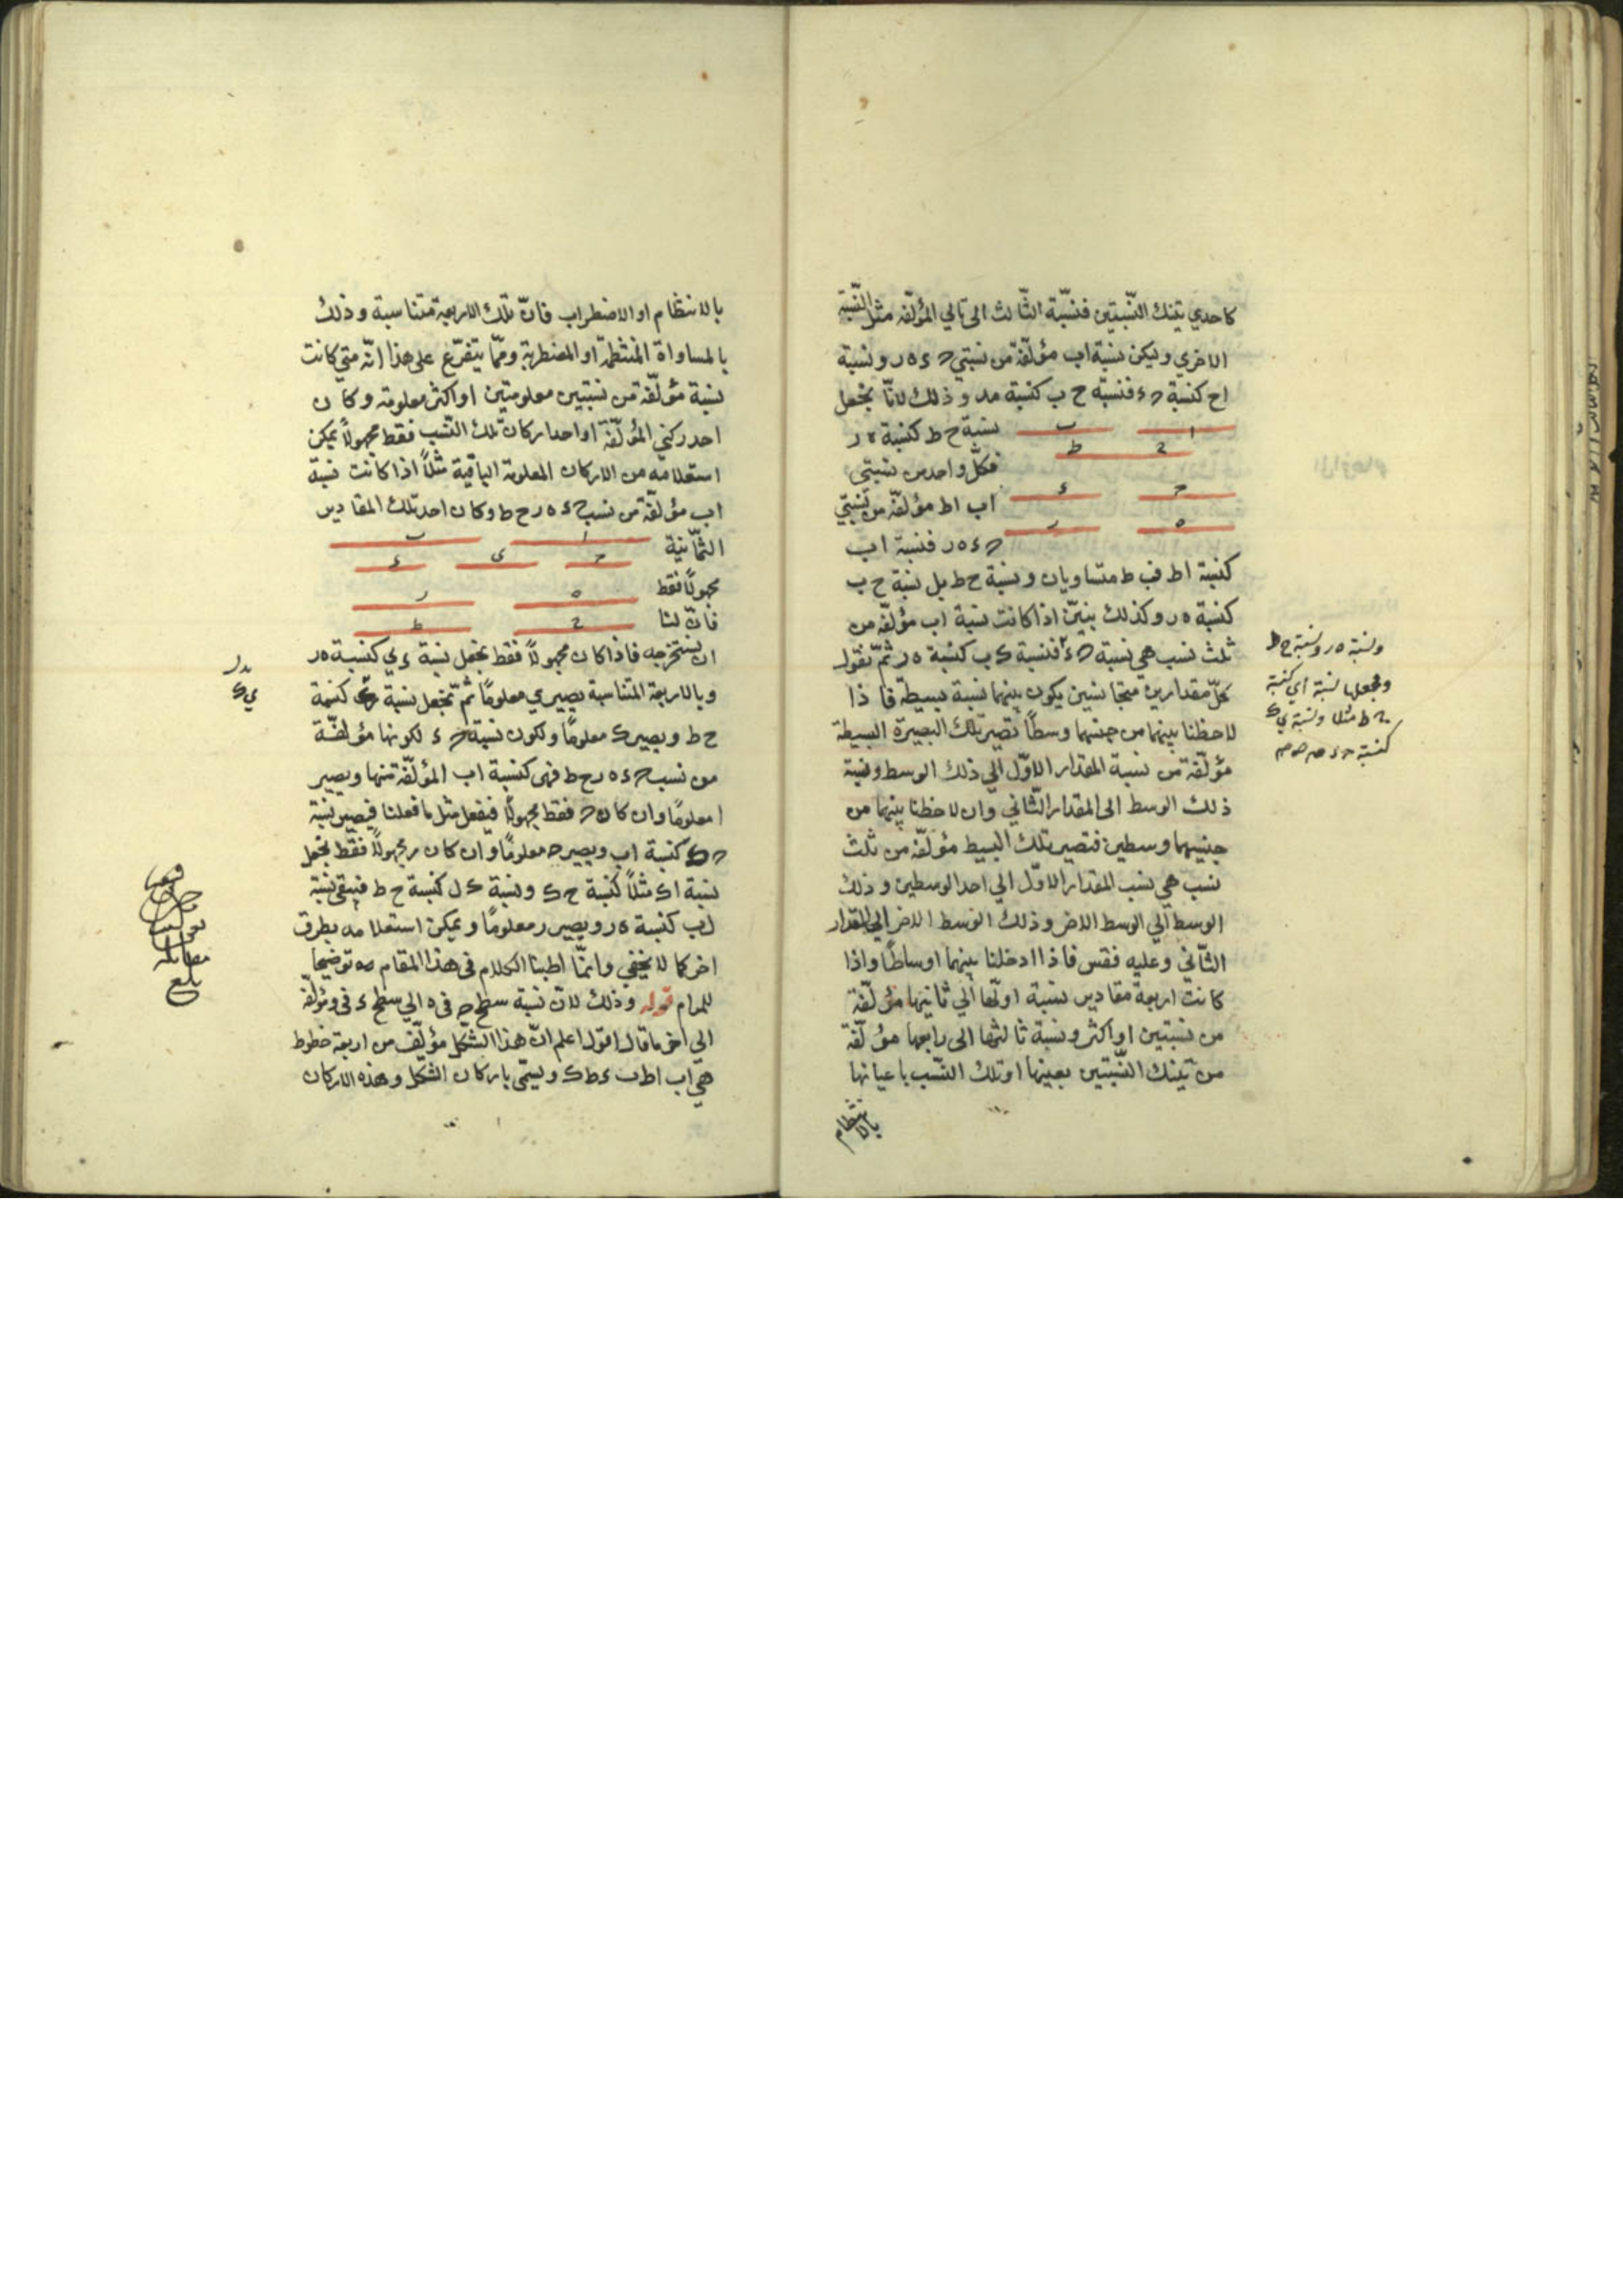 كاحدي تينك النّسبتين فنسبة الثّالث الى تالي المؤلّفة مثل النّسبة
الاخري وليكن نسبة اب مؤلّفة من نسبتي حء ه ر ونسبة
اح كنسبة حء فنسبة ح ب كنسبة ه ر وذلك لانّا نجعل
نسبة ح ط كنسبة ه ر
ا ب
ح ط
فكلّ واحد من نسبتي
ح ء
اب اط مؤلّفة من نسبتي
ه ر
حء ه ر فنسبة اب
كنسبة اط فب ط متساويان ونسبة ح ط بل نسبة ح ب
كنسبة ه ر وكذلك نبيّن اذا كانت نسبة اب مؤلّفة من
ثلث نسب هي نسبة حء فنسبة ك ب كنسبة ه ر ثمّ نقول
كلّ مقدارين متجانسين يكون بينهما نسبة بسيطة فاذا
لاحظنا بينهما من جنسهما وسطًا تصير تلك البصيرة البسيطة
مؤلّفة من نسبة المقدار الاوّل الي ذلك الوسط ونسبة
ذلك الوسط الى المقدار الثّاني وان لاحظنا بينهما من
جنسهما وسطين فتصير تلك البسيط مؤلّفة من ثلث
نسب هي نسب المقدار الاوّل الي احد الوسطين وذلك
الوسط الي الوسط الاخر وذلك الوسط الاخر الي المقدار
الثّاني وعليه فقس فاذا ادخلنا بينهما اوساطًا واذا
كانت اربعة مقادير نسبة اولها الي ثانيها مؤلّفة
من نسبتين او اكثر ونسبة ثالثها الى رابعها مؤلّفة
من تينك النّسبتين بعينها او تلك النّسب باعيانها
بالانتظام
ونسبة ه ر ونسبة ح ط
ونجعلها نسبة اي كنسبة
ح ط مثلا ونسبة ي ك
كنسبة حء
بالانتظام او الاضطراب فانّ تلك الاربعة متناسبة وذلك
بالمساواة المنتظمة او المضطربة وممّا يتفرّع على هذا انّه متي كانت
نسبة مؤلّفة من نسبتين معلومتين او اكثر معلومة وكان
احد ركني المؤلّفة او احد اركان تلك النّسب فقط مجهولاً يمكن
استعلامه من الاركان المعلومة الباقية مثلاً اذا كانت نسبة
اب مؤلّفة من نسب حء ه ر ح ط وكان احد تلك المقادير
الثّمانية
ا ب
ح ي ء
مجهولًا فقط
ه ر
فانّ لنا
ح ط
ان نستخرجه فاذا كان مجهولاً فقط نجعل نسبة ء ي كنسبة ه ر
وبالاربعة المتناسبة يصير ي معلومًا ثمّ نجعل نسبة ي ك كنسبة
ح ط ويصير ك معلومًا ولكون نسبة حء لكونها مؤلفّة
من نسب حء ه ر ح ط فهي كنسبة اب المؤلّفة منها ويصير
ا معلومًا وان كان ح فقط مجهولًا فنفعل مثل ما فعلنا فيصير نسبة
ح ك كنسبة اب ويصير ح معلومًا وان كان ر مجهولاً فقط نجعل
نسبة اك مثلاً كنسبة ح ك ونسبة ك ل كنسبة ح ط فيبقي نسبة
لب كنسبة ه ر ويصير ر معلومًا ويمكن استعلامه بطرق
اخر كما لا يخفي وانمّا اطنبنا الكلام في هذا المقام توضيحا
للمرام قوله وذلك لانّ نسبة سطح ح في ه الي سطح ء في ر مؤلّفة
الى اخر ما قال اقول اعلم انّ هذا الشّكل مؤلّف من اربعة خطوط
هي اب اط ب ء ط ك ويسمّى باركان الشّكل وهذه الاركان
ي ك
مقابله
بلغ